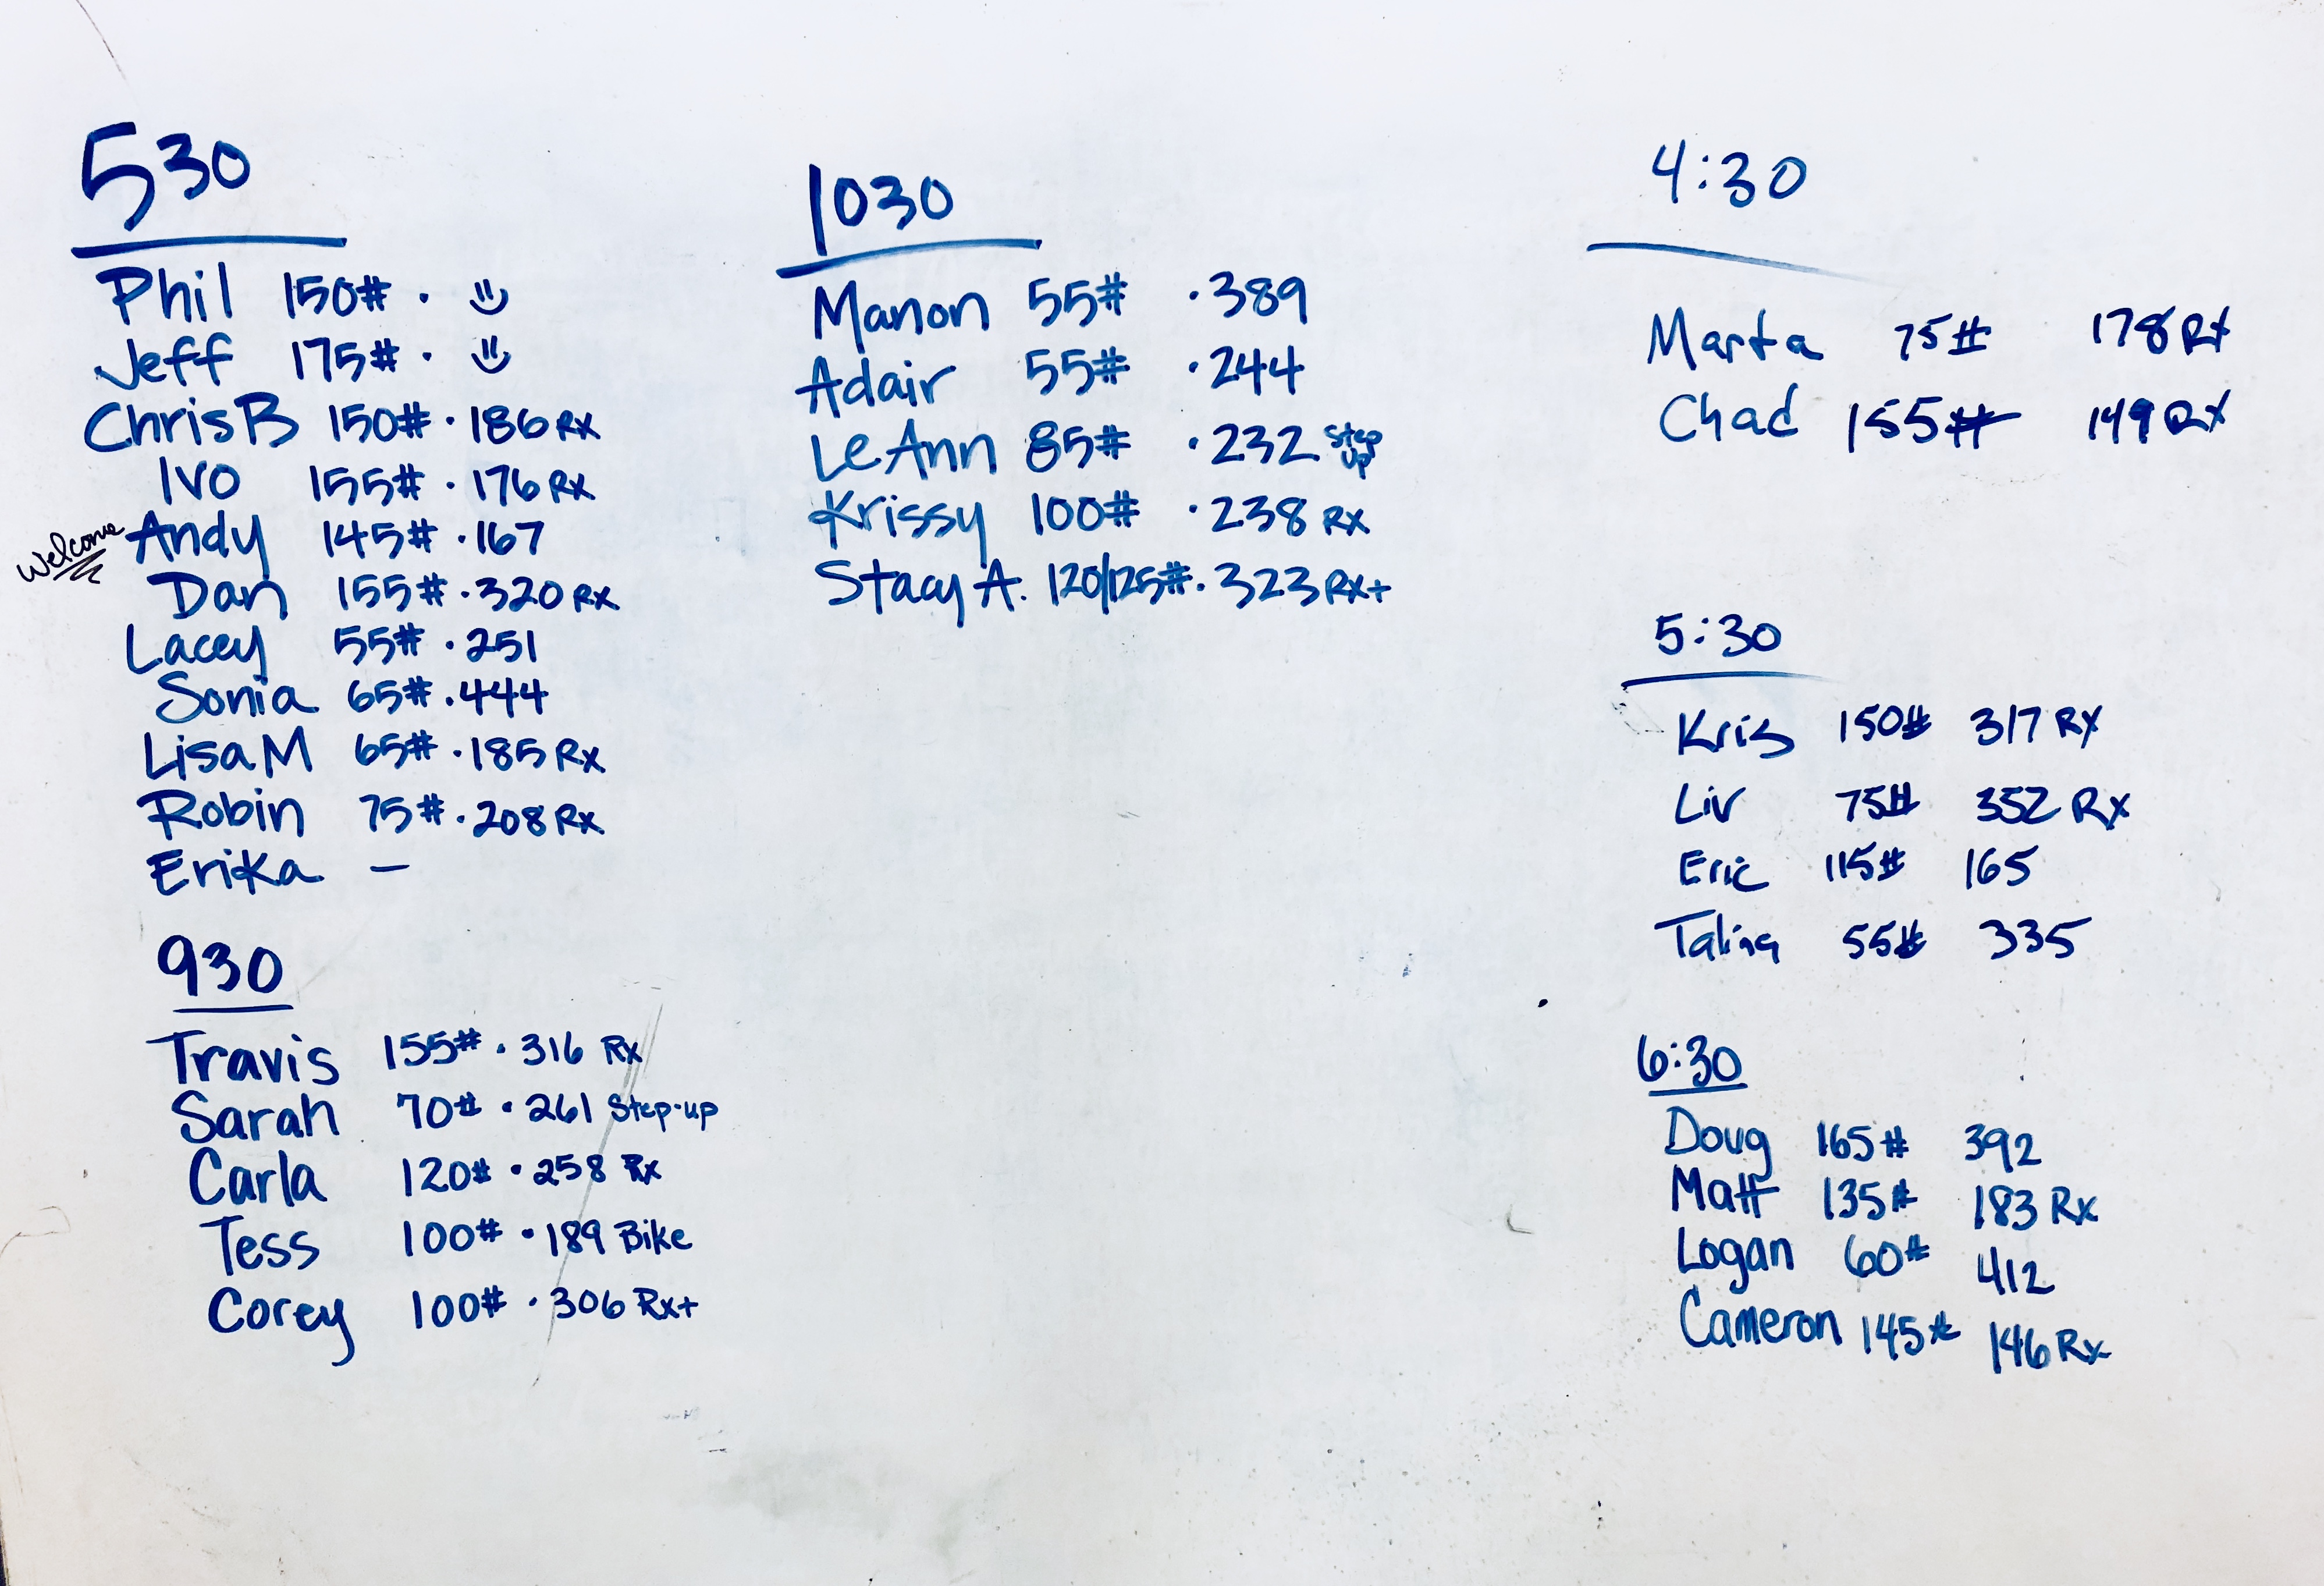 530
Phil 150# .
Jeff 175# .
Chris B 150# . 186 Rx
Ivo 155# . 176 Rx
welcome Andy 145# . 167
Dan 155# . 320 Rx
Lacey 55# . 251
Sonia 65# . 444
Lisa M 65# . 185 Rx
Robin 75# . 208 Rx
Erika —
930
Travis 155# . 316 Rx
Sarah 70# . 261 Step-up
Carla 120# . 258 Rx
Tess 100# . 189 Bike
Corey 100# . 306 Rx+
1030
Manon 55# . 389
Adair 55# . 244
LeAnn 85# . 232 Step up
Krissy 100# . 238 Rx
Stacy A. 120/125# . 323 Rx+
4:30
Marta 75# 178 Rx
Chad 155# 149 Rx
5:30
Kris 150# 317 Rx
Liv 75# 352 Rx
Eric 115# 165
Talina 55# 335
6:30
Doug 165# 392
Matt 135# 183 Rx
Logan 60# 412
Cameron 145# 146 Rx